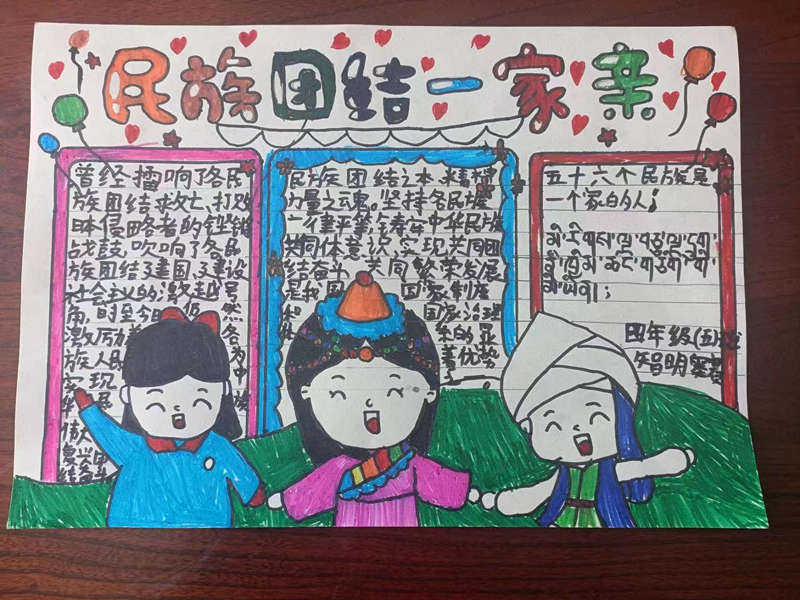 民族团结一家亲
曾经擂响了各民
族团结救亡、打败
日本侵略者的铿锵
战鼓吹响了各民
族团结建国、建设
社会主义的激越号
角,时至今日 仍 然
激励着 各
族人民 为
实现 中
华 族
民族团结之本、精神
力量之魂。坚持各民族
一律平等,铸牢中华民族
共同体意识,实现共同团
结奋斗、共同繁荣发展
是我国 国家制度
和 国家治理
的显
著优势
五十六个民族是
一个家的人;
མི་རིགས་ལྔ་བཅུ་ང་དྲུག་
ཁྱིམ་ཚང་གཅིག་གི་
མི་ཡིན།
四年级(五)班